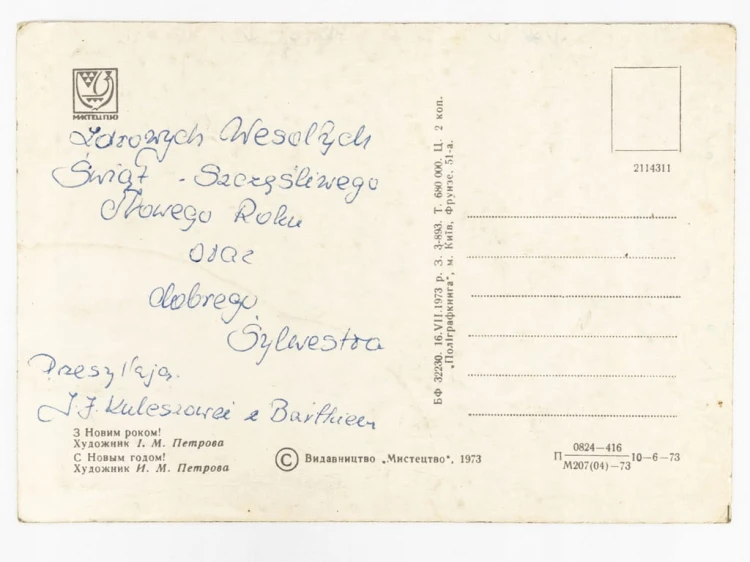 МИСТЕЦТВО
Zdrowych Wesołych
Świąt - Szczęśliwego
Nowego Roku
oraz
dobrego
Sylwestra
Przesyłają
J.J. Kuleszowei z Bartkiem
З Новим роком!
Художник І. М. Петрова
С Новым годом!
Художник И. М. Петрова
© Видавництво „Мистецтво“, 1973
БФ 32230. 16.VII.1973 р. З. 3-893. Т. 680 000. Ц. 2 коп.
„Поліграфкнига“, м. Київ, Фрунзе, 51-а.
2114311
П 0824—416 10—6—73
М207(04)—73